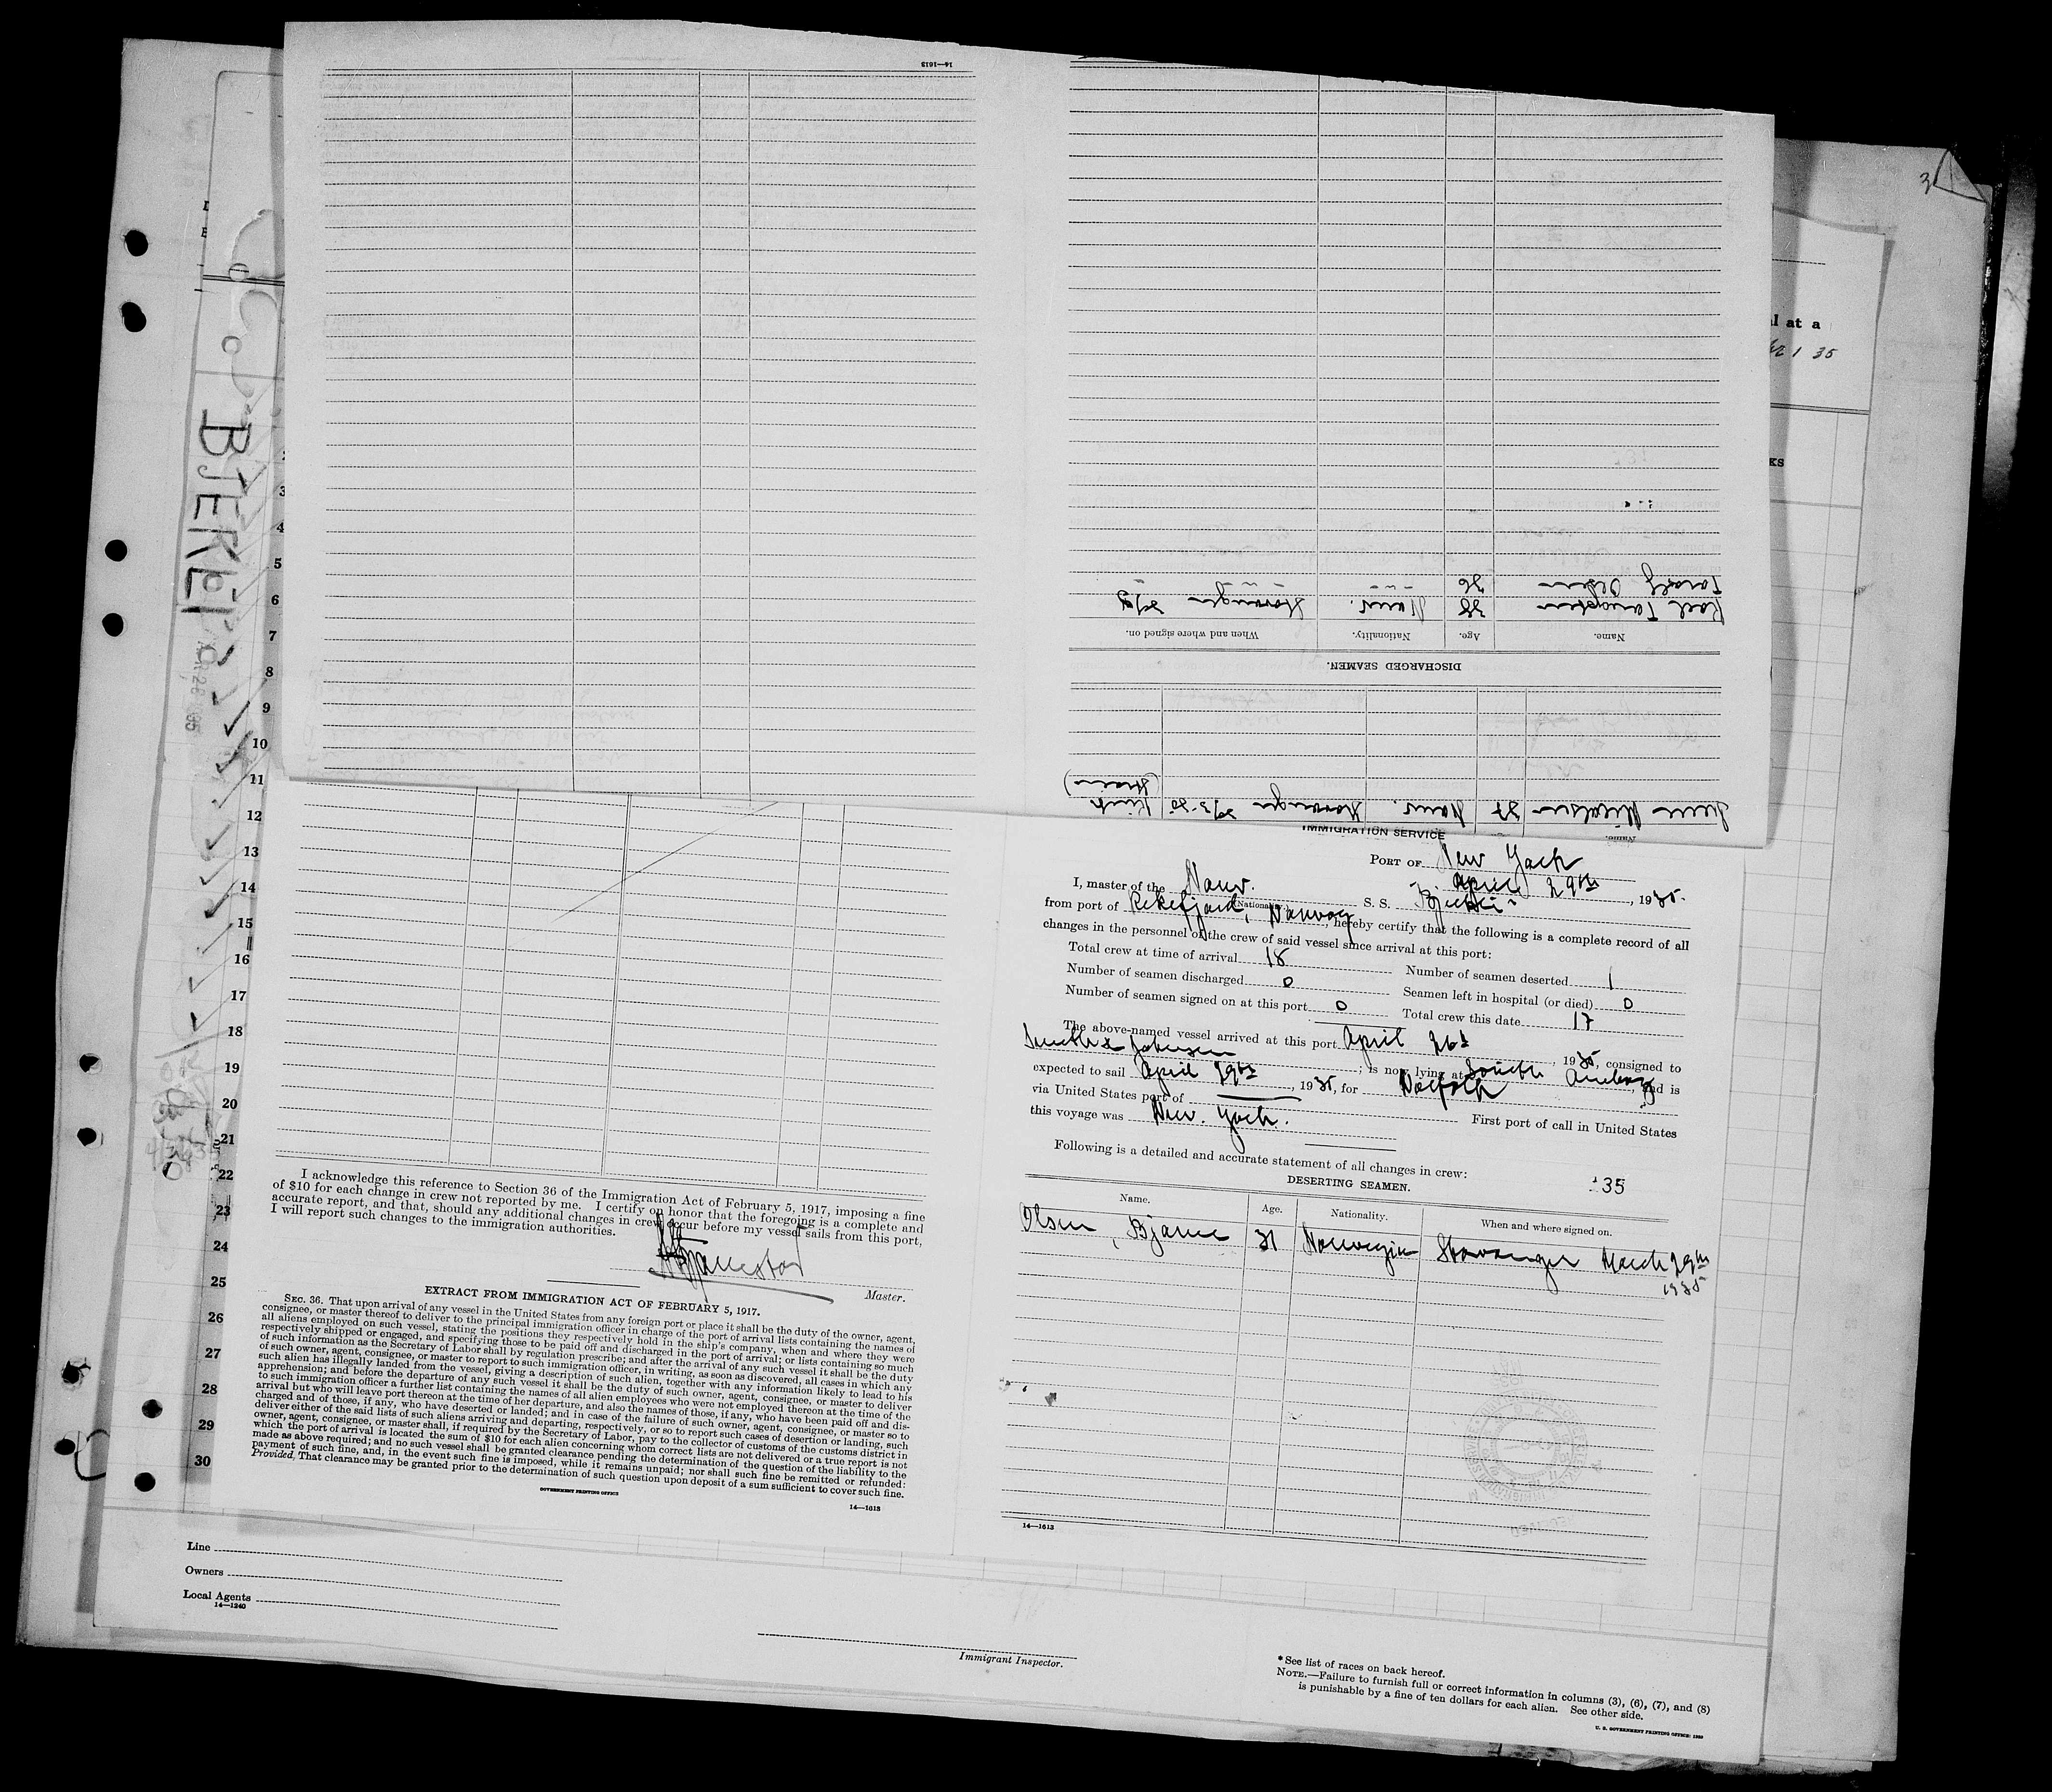 14—1613
3
DISCHARGED SEAMEN.
Name. Age. Nationality. When and where signed on.
38 Norv. Stavanger
Olsen 36
Norv. Stavanger
Name.
l at a
35
KS
BJERKLI
3
4
5
6
7
8
9
10
11
12
13
14
15
16
17
18
19
20
21
22
23
24
25
26
27
28
29
30
IMMIGRATION SERVICE
PORT OF New York
April 29th, 1935.
I, master of the Norv. S. S. Bjerkli
from port of Rekefjord, Norway, hereby certify that the following is a complete record of all
changes in the personnel of the crew of said vessel since arrival at this port:
Total crew at time of arrival 18
Number of seamen deserted 1
Number of seamen discharged 0
Seamen left in hospital (or died) 0
Number of seamen signed on at this port 0
Total crew this date 17
The above-named vessel arrived at this port April 26th, 1935, consigned to
Smith & Johnson; is now lying at South Amboy, and is
expected to sail April 29th, 1935, for Norfolk
via United States port of
First port of call in United States
this voyage was New York.
Following is a detailed and accurate statement of all changes in crew:
35
DESERTING SEAMEN.
Name. Age. Nationality. When and where signed on.
Olsen, Bjarne 31 Norwegian Stavanger March 29th
1935
14—1613
I acknowledge this reference to Section 36 of the Immigration Act of February 5, 1917, imposing a fine
of $10 for each change in crew not reported by me. I certify on honor that the foregoing is a complete and
accurate report, and that, should any additional changes in crew occur before my vessel sails from this port,
I will report such changes to the immigration authorities.
Master.
EXTRACT FROM IMMIGRATION ACT OF FEBRUARY 5, 1917.
SEC. 36. That upon arrival of any vessel in the United States from any foreign port or place it shall be the duty of the owner, agent,
consignee, or master thereof to deliver to the principal immigration officer in charge of the port of arrival lists containing the names of
all aliens employed on such vessel, stating the positions they respectively hold in the ship's company, when and where they were
respectively shipped or engaged, and specifying those to be paid off and discharged in the port of arrival; or lists containing so much
of such information as the Secretary of Labor shall by regulation prescribe; and after the arrival of any such vessel it shall be the duty
of such owner, agent, consignee, or master to report to such immigration officer, in writing, as soon as discovered, all cases in which any
such alien has illegally landed from the vessel, giving a description of such alien, together with any information likely to lead to his
apprehension; and before the departure of any such vessel it shall be the duty of such owner, agent, consignee, or master to deliver
to such immigration officer a further list containing the names of all alien employees who were not employed thereon at the time of the
arrival but who will leave port thereon at the time of her departure, and also the names of those, if any, who have been paid off and dis-
charged and of those, if any, who have deserted or landed; and in case of the failure of such owner, agent, consignee, or master so to
deliver either of the said lists of such aliens arriving and departing, respectively, or so to report such cases of desertion or landing, such
owner, agent, consignee, or master shall, if required by the Secretary of Labor, pay to the collector of customs of the customs district in
which the port of arrival is located the sum of $10 for each alien concerning whom correct lists are not delivered or a true report is not
made as above required; and no such vessel shall be granted clearance pending the determination of the question of the liability to the
payment of such fine, and, in the event such fine is imposed, while it remains unpaid; nor shall such fine be remitted or refunded:
Provided, That clearance may be granted prior to the determination of such question upon deposit of a sum sufficient to cover such fine.
GOVERNMENT PRINTING OFFICE
14—1613
Line
Owners
Local Agents
14—1240
Immigrant Inspector.
* See list of races on back hereof.
NOTE.—Failure to furnish full or correct information in columns (3), (6), (7), and (8)
is punishable by a fine of ten dollars for each alien. See other side.
U. S. GOVERNMENT PRINTING OFFICE: